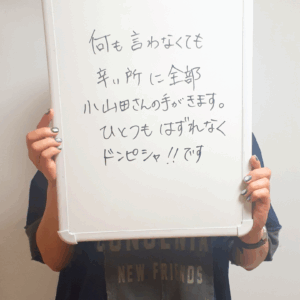 何も言わなくても
辛い所に全部
小山田さんの手がきます。
ひとつもはずれなく
ドンピシャ!!です
NEW FRIENDS